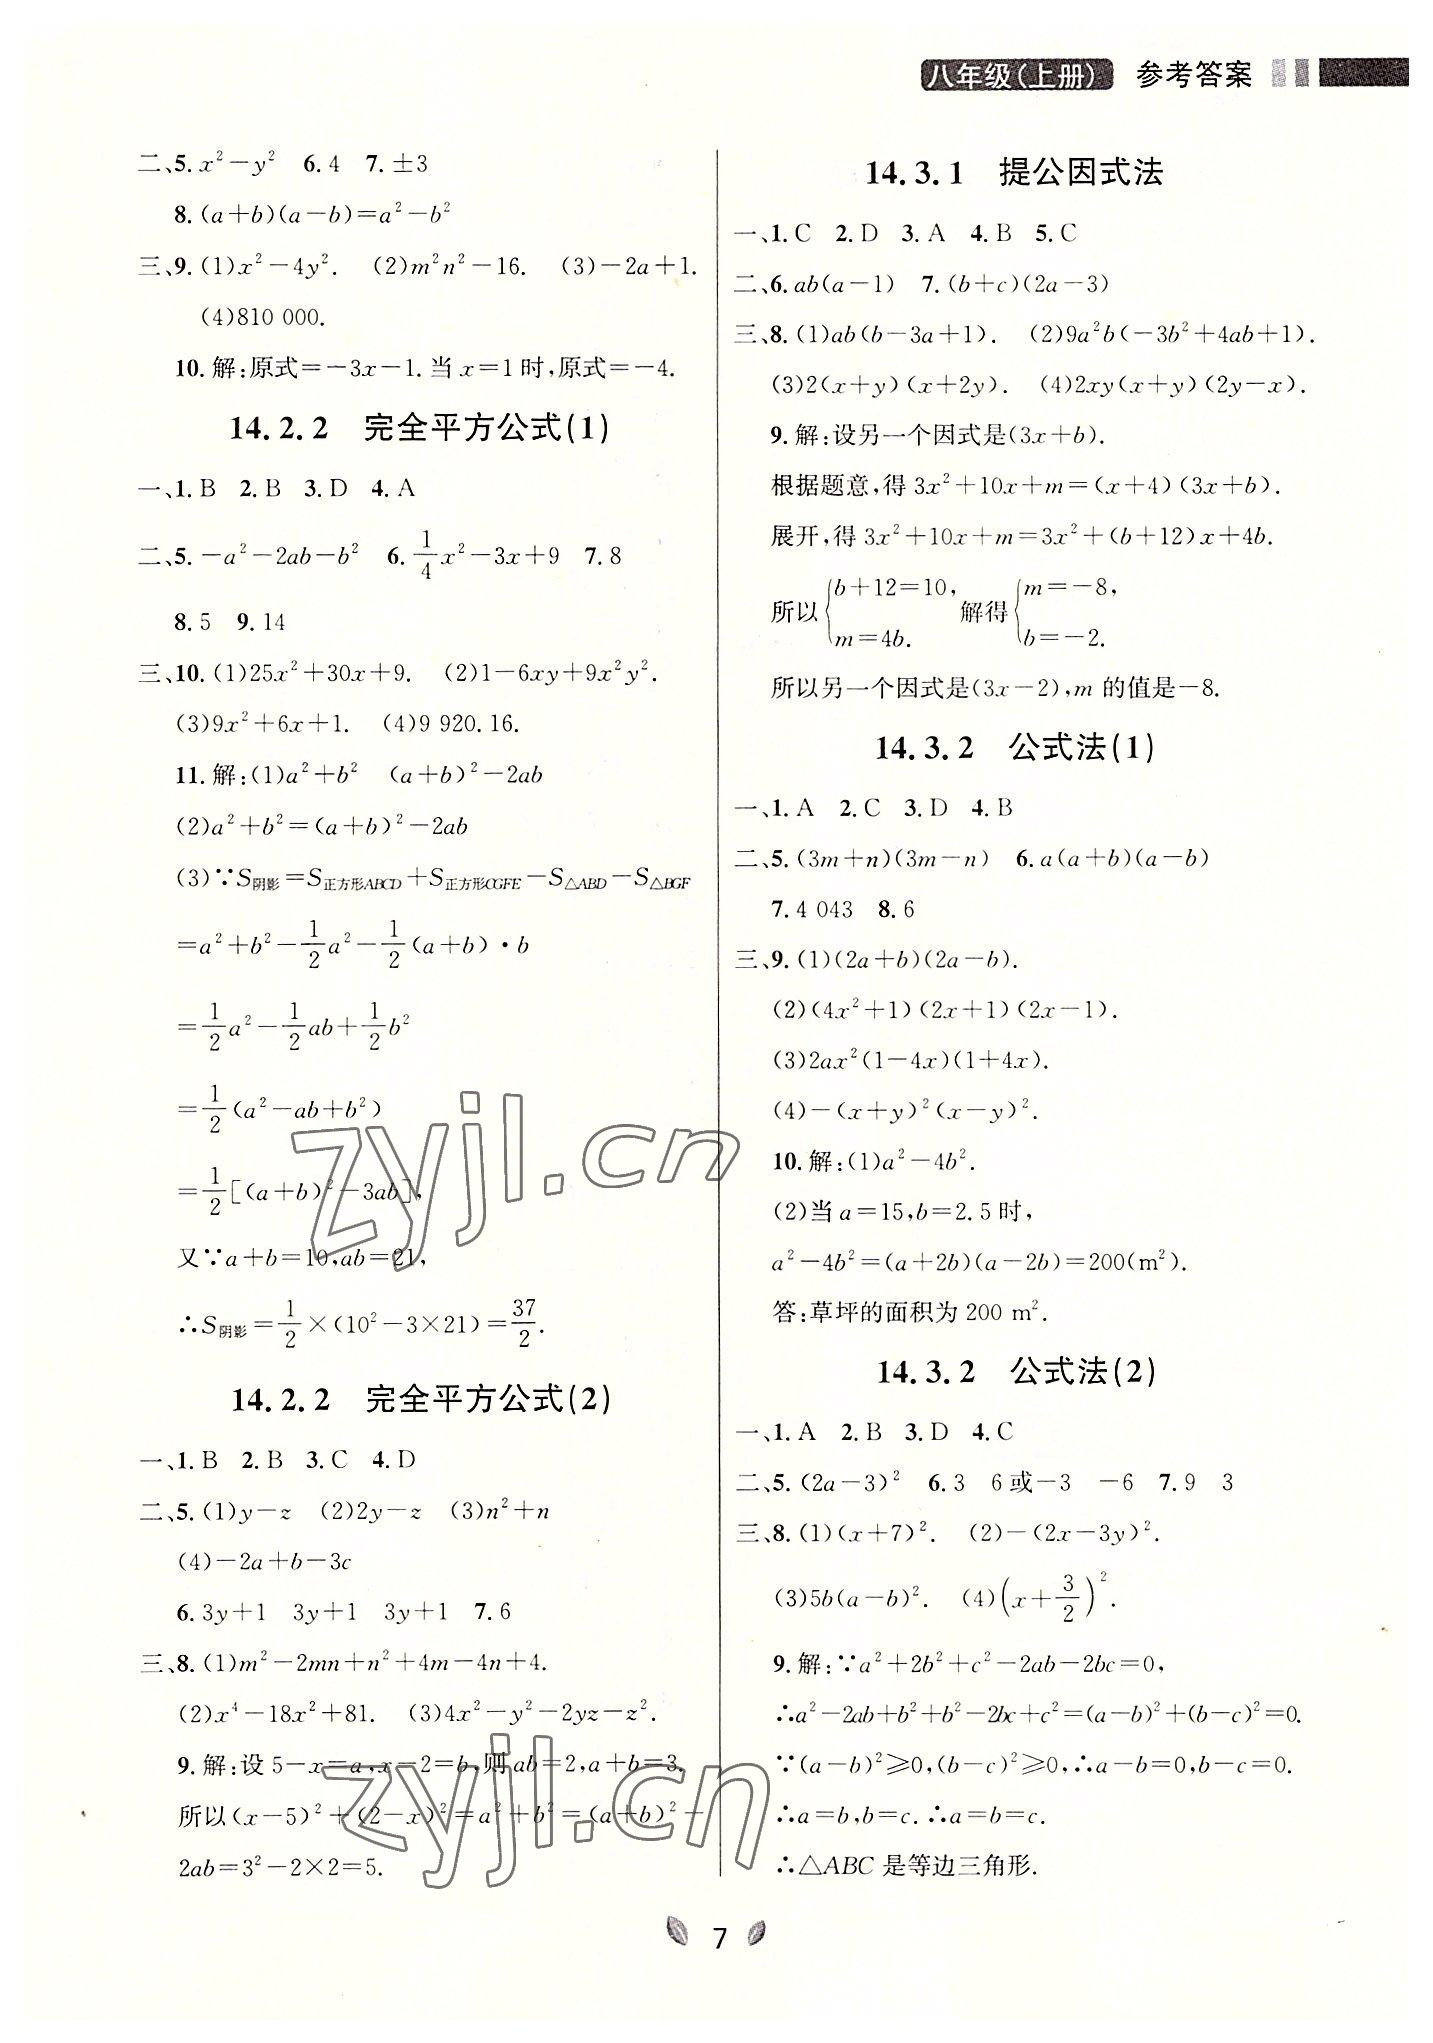 八年级(上册) 参考答案
二、5. x²－y² 6. 4 7. ±3
8. (a＋b)(a－b)＝a²－b²
三、9. (1)x²－4y². (2)m²n²－16. (3)－2a＋1.
(4)810 000.
10. 解:原式＝－3x－1. 当 x＝1 时,原式＝－4.
14.2.2 完全平方公式(1)
一、1. B 2. B 3. D 4. A
二、5. －a²－2ab－b² 6. 1/4 x²－3x＋9 7. 8
8. 5 9. 14
三、10. (1)25x²＋30x＋9. (2)1－6xy＋9x²y².
(3)9x²＋6x＋1. (4)9 920.16.
11. 解:(1)a²＋b² (a＋b)²－2ab
(2)a²＋b²＝(a＋b)²－2ab
(3)∵S阴影＝S正方形ABCD＋S正方形CGFE－S△ABD－S△BGF
＝a²＋b²－1/2 a²－1/2 (a＋b)·b
＝1/2 a²－1/2 ab＋1/2 b²
＝1/2 (a²－ab＋b²)
＝1/2 [(a＋b)²－3ab],
又∵a＋b＝10,ab＝21,
∴S阴影＝1/2×(10²－3×21)＝37/2.
14.2.2 完全平方公式(2)
一、1. B 2. B 3. C 4. D
二、5. (1)y－z (2)2y－z (3)n²＋n
(4)－2a＋b－3c
6. 3y＋1 3y＋1 3y＋1 7. 6
三、8. (1)m²－2mn＋n²＋4m－4n＋4.
(2)x⁴－18x²＋81. (3)4x²－y²－2yz－z².
9. 解:设 5－x＝a,x－2＝b,则 ab＝2,a＋b＝3.
所以(x－5)²＋(2－x)²＝a²＋b²＝(a＋b)²－
2ab＝3²－2×2＝5.
14.3.1 提公因式法
一、1. C 2. D 3. A 4. B 5. C
二、6. ab(a－1) 7. (b＋c)(2a－3)
三、8. (1)ab(b－3a＋1). (2)9a²b(－3b²＋4ab＋1).
(3)2(x＋y)(x＋2y). (4)2xy(x＋y)(2y－x).
9. 解:设另一个因式是(3x＋b).
根据题意,得 3x²＋10x＋m＝(x＋4)(3x＋b).
展开,得 3x²＋10x＋m＝3x²＋(b＋12)x＋4b.
所以{b＋12＝10, m＝4b. 解得{m＝－8, b＝－2.
所以另一个因式是(3x－2),m 的值是－8.
14.3.2 公式法(1)
一、1. A 2. C 3. D 4. B
二、5. (3m＋n)(3m－n) 6. a(a＋b)(a－b)
7. 4 043 8. 6
三、9. (1)(2a＋b)(2a－b).
(2)(4x²＋1)(2x＋1)(2x－1).
(3)2ax²(1－4x)(1＋4x).
(4)－(x＋y)²(x－y)².
10. 解:(1)a²－4b².
(2)当 a＝15,b＝2.5 时,
a²－4b²＝(a＋2b)(a－2b)＝200(m²).
答:草坪的面积为 200 m².
14.3.2 公式法(2)
一、1. A 2. B 3. D 4. C
二、5. (2a－3)² 6. 3 6或－3 －6 7. 9 3
三、8. (1)(x＋7)². (2)－(2x－3y)².
(3)5b(a－b)². (4)(x＋3/2)².
9. 解:∵a²＋2b²＋c²－2ab－2bc＝0,
∴a²－2ab＋b²＋b²－2bc＋c²＝(a－b)²＋(b－c)²＝0.
∵(a－b)²≥0,(b－c)²≥0,∴a－b＝0,b－c＝0.
∴a＝b,b＝c. ∴a＝b＝c.
∴△ABC 是等边三角形.
7
zyjl.cn
zyjl.cn